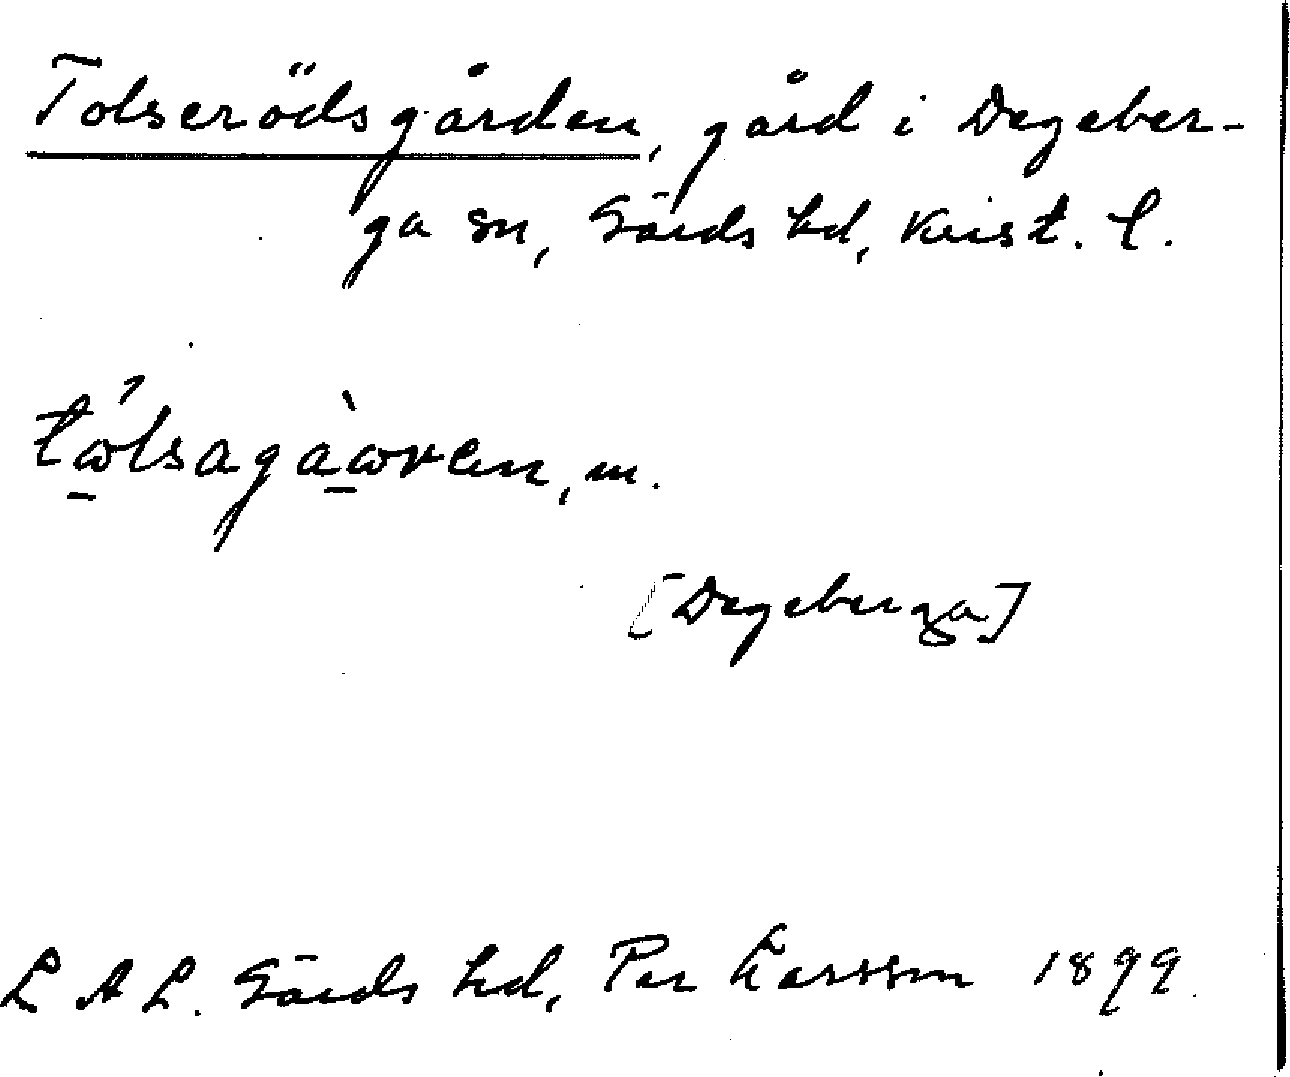 Tolserödsgården, gård i Degeber-
ga sn, Gärds hd, Krist. l.
tώ̲lsagàω̲ren, m.
[Degeberga]
L A L. Gärds hd, Per Larsson 1899.